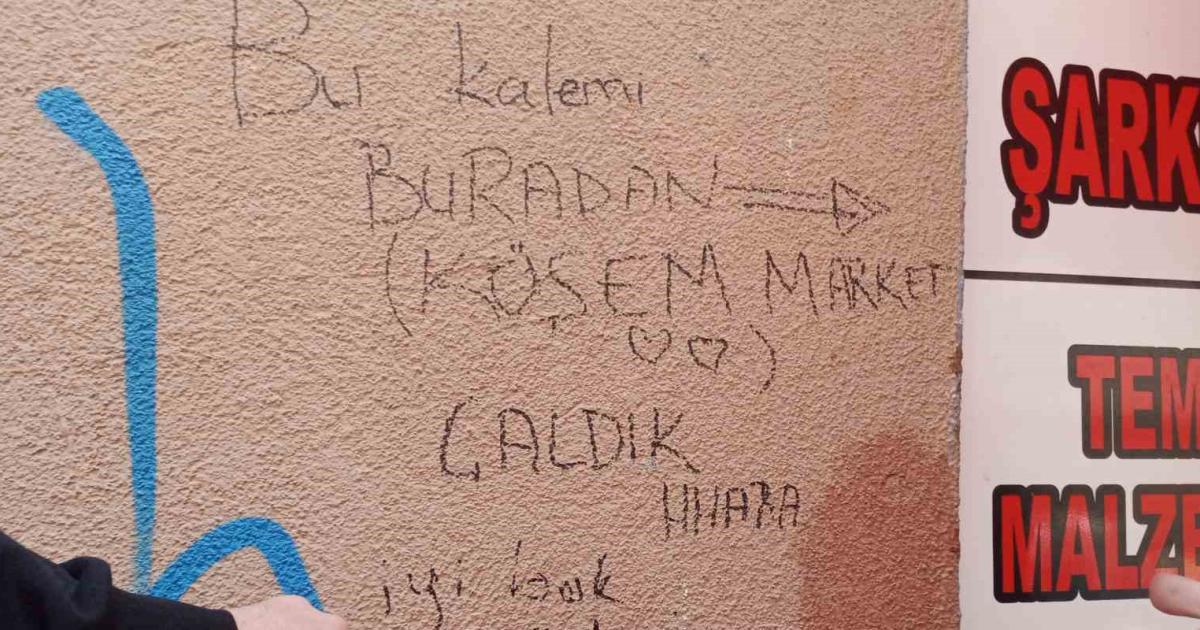 Bu kalemi
BURADAN
(KÖŞEM MARKET
♡♡)
ÇALDIK
iyi
ŞARK
TEM
MALZE